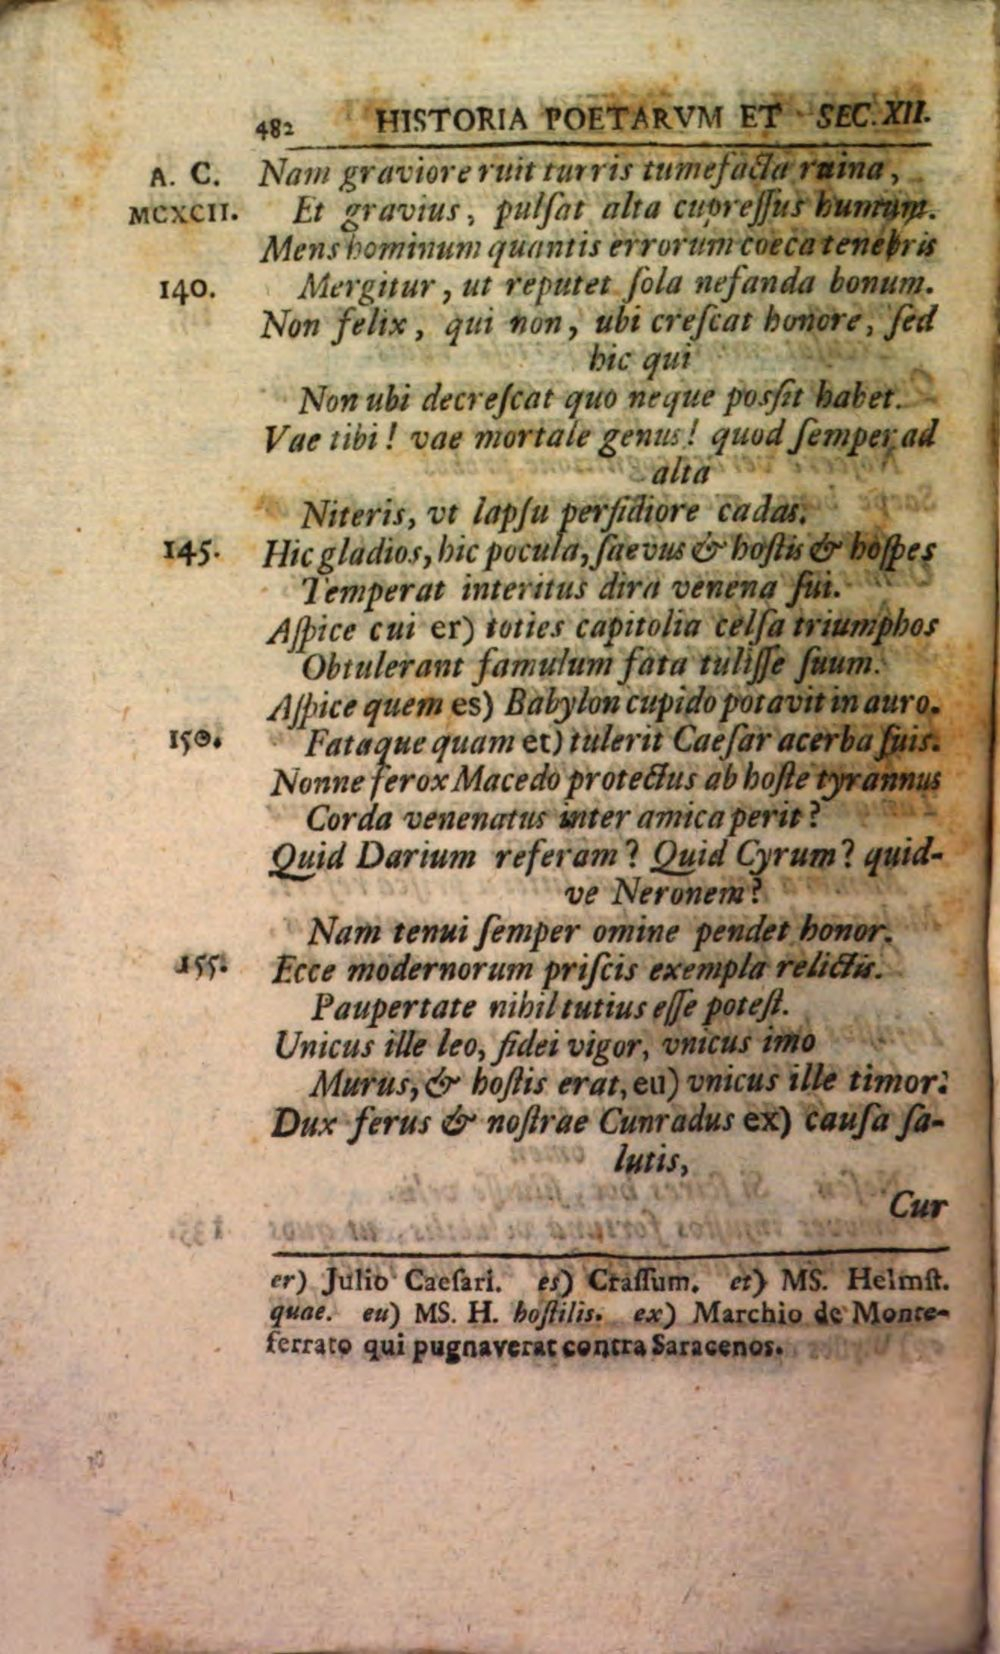 482 HISTORIA POETARVM ET SEC. XII.
A. C. Nam graviore ruit turris tumefacta ruina,
MCXCII. Et gravius, pulſat alta cupreſſus humum.
Mens hominum quantis errorum coeca tenebris
140. Mergitur, ut reputet ſola nefanda bonum.
Non felix, qui non, ubi creſcat honore, ſed
hic qui
Non ubi decreſcat quo neque posſit habet.
Vae tibi! vae mortale genus! quod ſemper ad
alta
Niteris, vt lapſu perfidiore cadas.
145. Hic gladios, hic pocula, ſaevus & hoſtis & hoſpes
Temperat interitus dira venena ſui.
Aſpice cui er) toties capitolia celſa triumphos
Obtulerant famulum fata tuliſſe ſuum.
Aſpice quem es) Babylon cupido potavit in auro.
150. Fataque quam et) tulerit Caeſar acerba ſuis.
Nonne ferox Macedo protectus ab hoſte tyrannus
Corda venenatus inter amica perit?
Quid Darium referam? Quid Cyrum? quid-
ve Neronem?
Nam tenui ſemper omine pendet honor.
155. Ecce modernorum priſcis exempla relictis.
Paupertate nihil tutius eſſe poteſt.
Unicus ille leo, fidei vigor, vnicus imo
Murus, & hoſtis erat, eu) vnicus ille timor:
Dux ferus & noſtrae Cunradus ex) cauſa ſa-
lutis,
Cur
er) Julio Caeſari. es) Craſſum. et) MS. Helmſt.
quae. eu) MS. H. hoſtilis. ex) Marchio de Monte-
ferrato qui pugnaverat contra Saracenos.